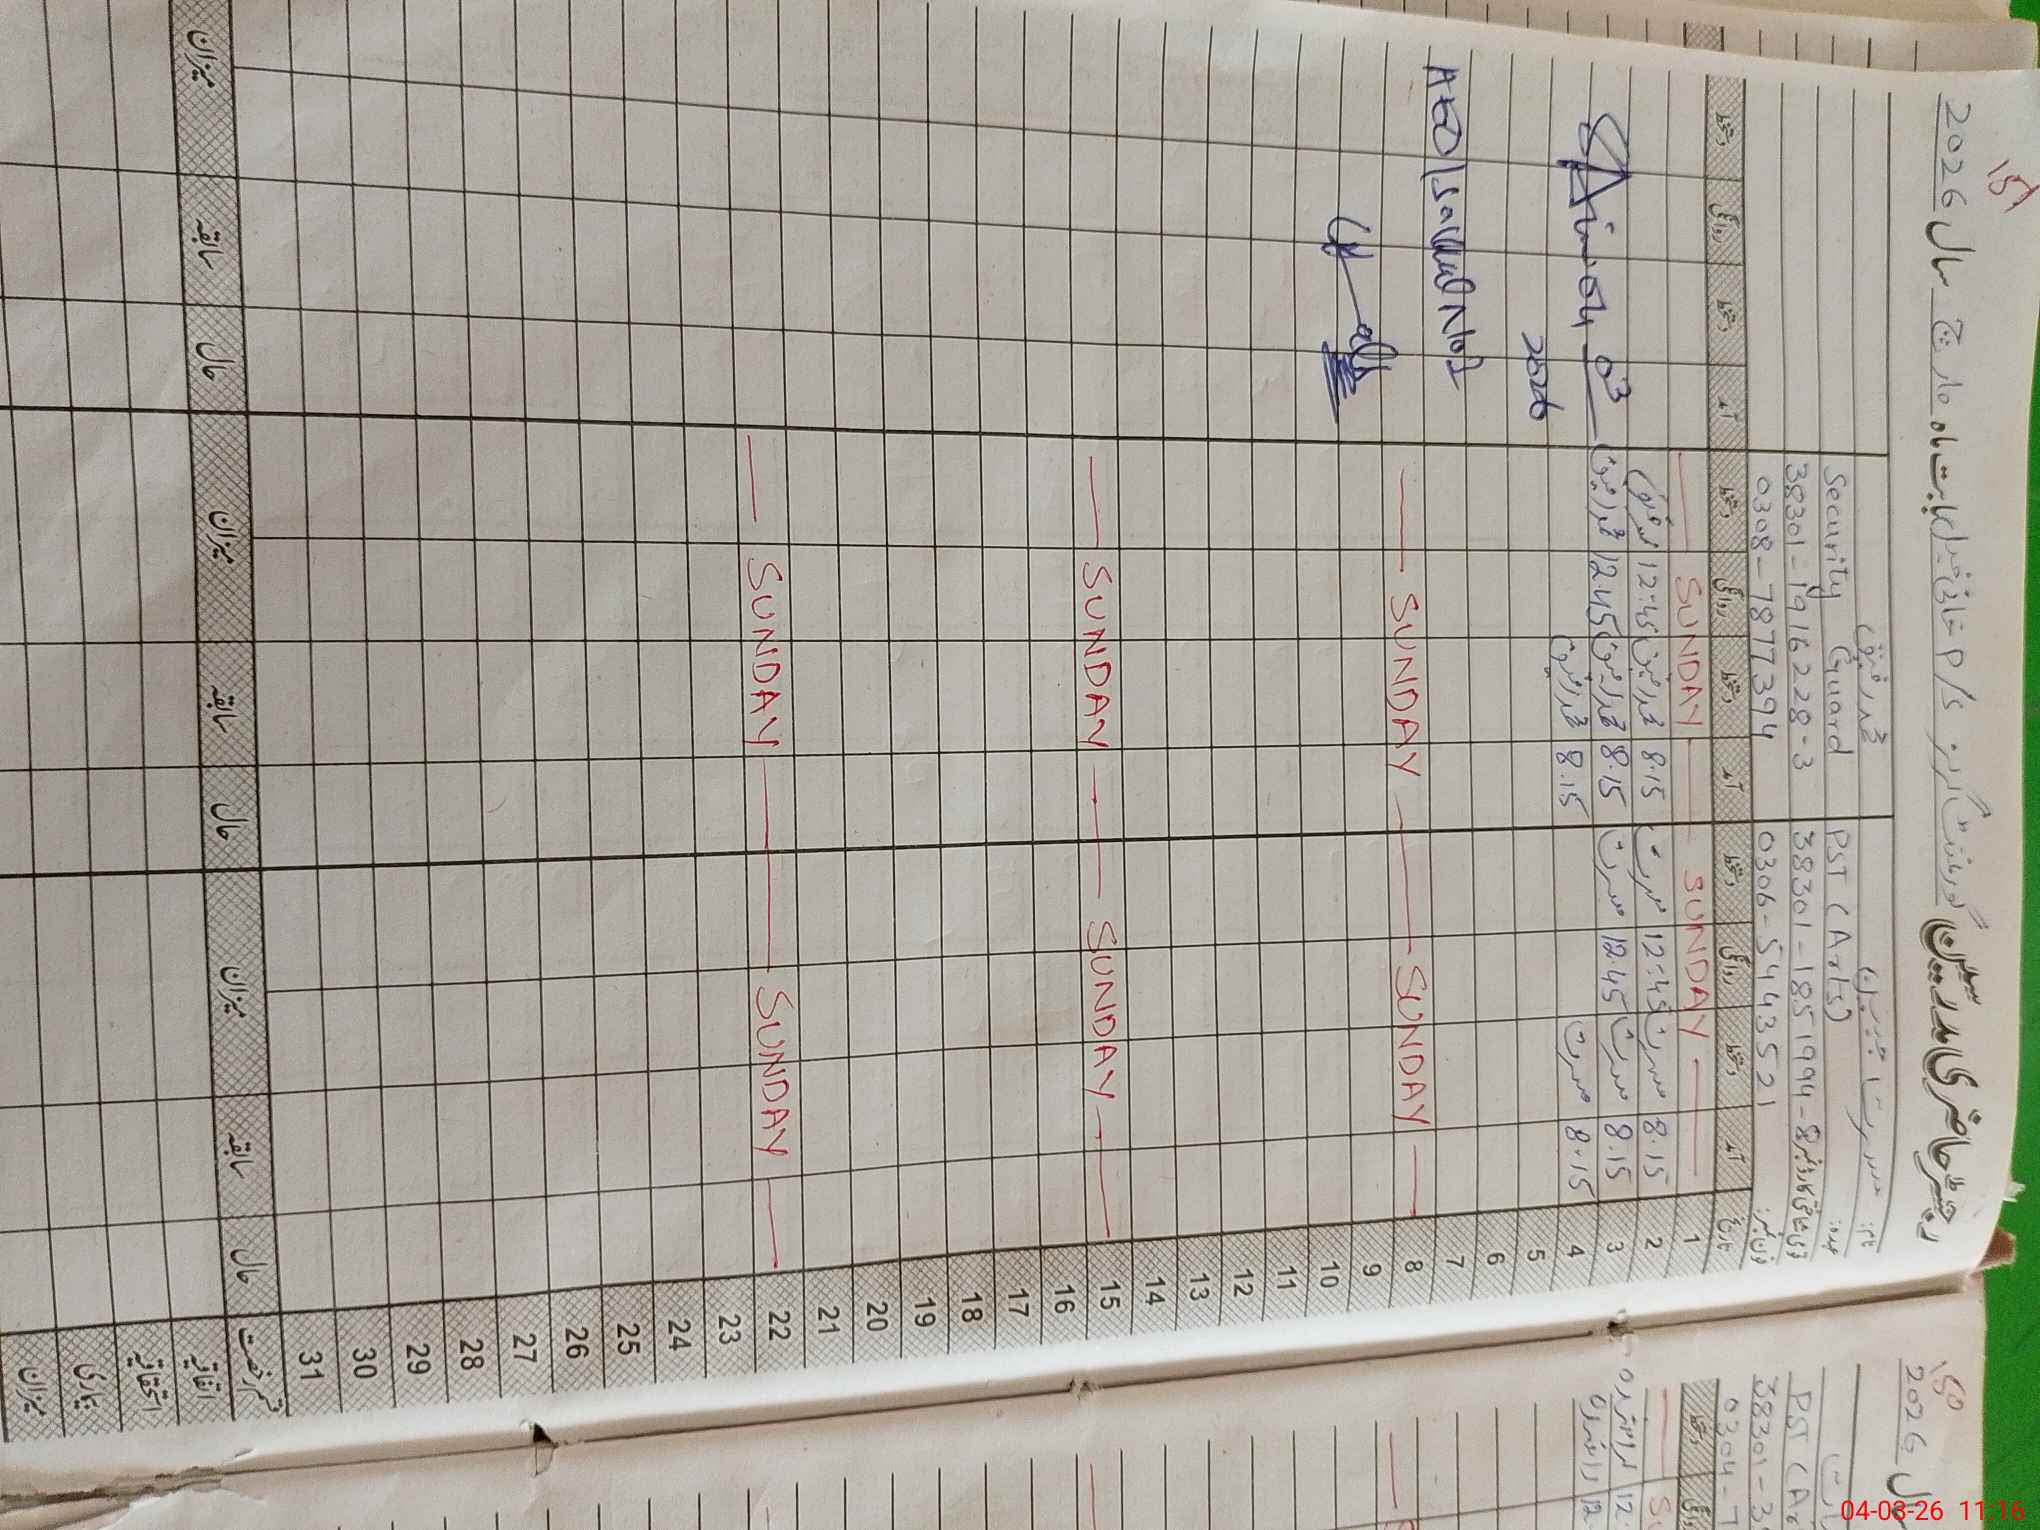 151
رجسٹر حاضری مدرسین گورنمنٹ گرلز P/S بابت ماہ مارچ سال 2026
نام: مسرت جبین
محمد رفیق
عہدہ: PST (Arts)
Security Guard
قومی شناختی کارڈ نمبر 38301-1851994-8
38301-1916228-3
فون نمبر: 0306-5443521
0308-7877394
تاریخ آمد دستخط روانگی دستخط آمد دستخط روانگی دستخط آمد دستخط روانگی دستخط
1 SUNDAY SUNDAY
2 8.15 مسرت 12:45 مسرت 8.15 محمد رفیق 12:45 محمد رفیق
3 8.15 مسرت 12.45 مسرت 8.15 محمد رفیق 12.45 محمد رفیق
4 8.15 مسرت 8.15 محمد رفیق
04 03
2026
5
6
7
8 SUNDAY SUNDAY
9
10
11
12
13
14
15 SUNDAY SUNDAY
16
17
18
19
20
21
22 SUNDAY SUNDAY
23
24
25
26
27
28
29
30
31
قسم رخصت حال سابقہ میزان حال سابقہ میزان حال سابقہ میزان
اتفاقیہ
استحقاقیہ
بیماری
میزان
150
سال 2026
PST (Ar
38301-3
0304-7
دستخط روانگی
12
12
04-03-26 11:16